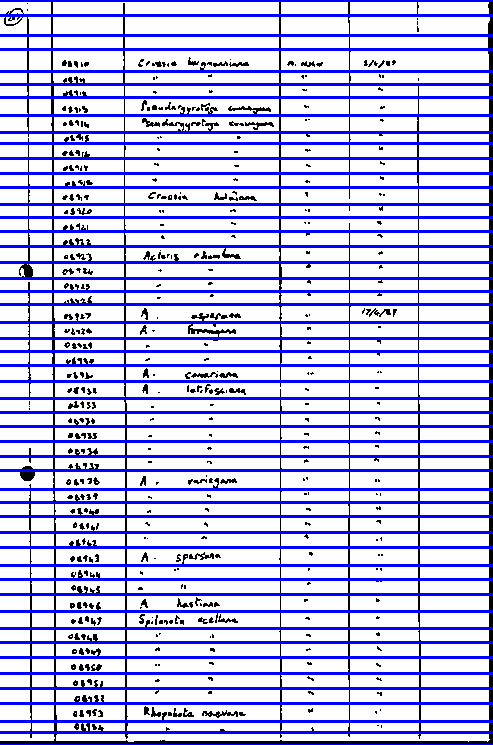 08910 Croesia bergmanniana " 2/6/89
08911 " " " "
08912 " " " "
08913 Pseudargyrotoza conwagana " "
08914 Pseudargyrotoza conwagana " "
08915 " " " "
08916 " " " "
08917 " " " "
08918 " " " "
08919 Croesia " "
08920 " " " "
08921 " " " "
08922 " " " "
08923 Acleris rhombana " "
08924 " " " "
08925 " " " "
08926 " " " "
08927 A. aspersana " 17/6/89
08928 A. ferrugana " "
08929 " " " "
08930 " " " "
08931 A. comariana " "
08932 A. latifasciana " "
08933 " " " "
08934 " " " "
08935 " " " "
08936 " " " "
08937 " " " "
08938 A. variegana " "
08939 " " " "
08940 " " " "
08941 " " " "
08942 " " " "
08943 A. sparsana " "
08944 " " " "
08945 " " " "
08946 A hastiana " "
08947 Spilonota ocellana " "
08948 " " " "
08949 " " " "
08950 " " " "
08951 " " " "
08952 " " " "
08953 Rhopobota naevana " "
08954 " " " "